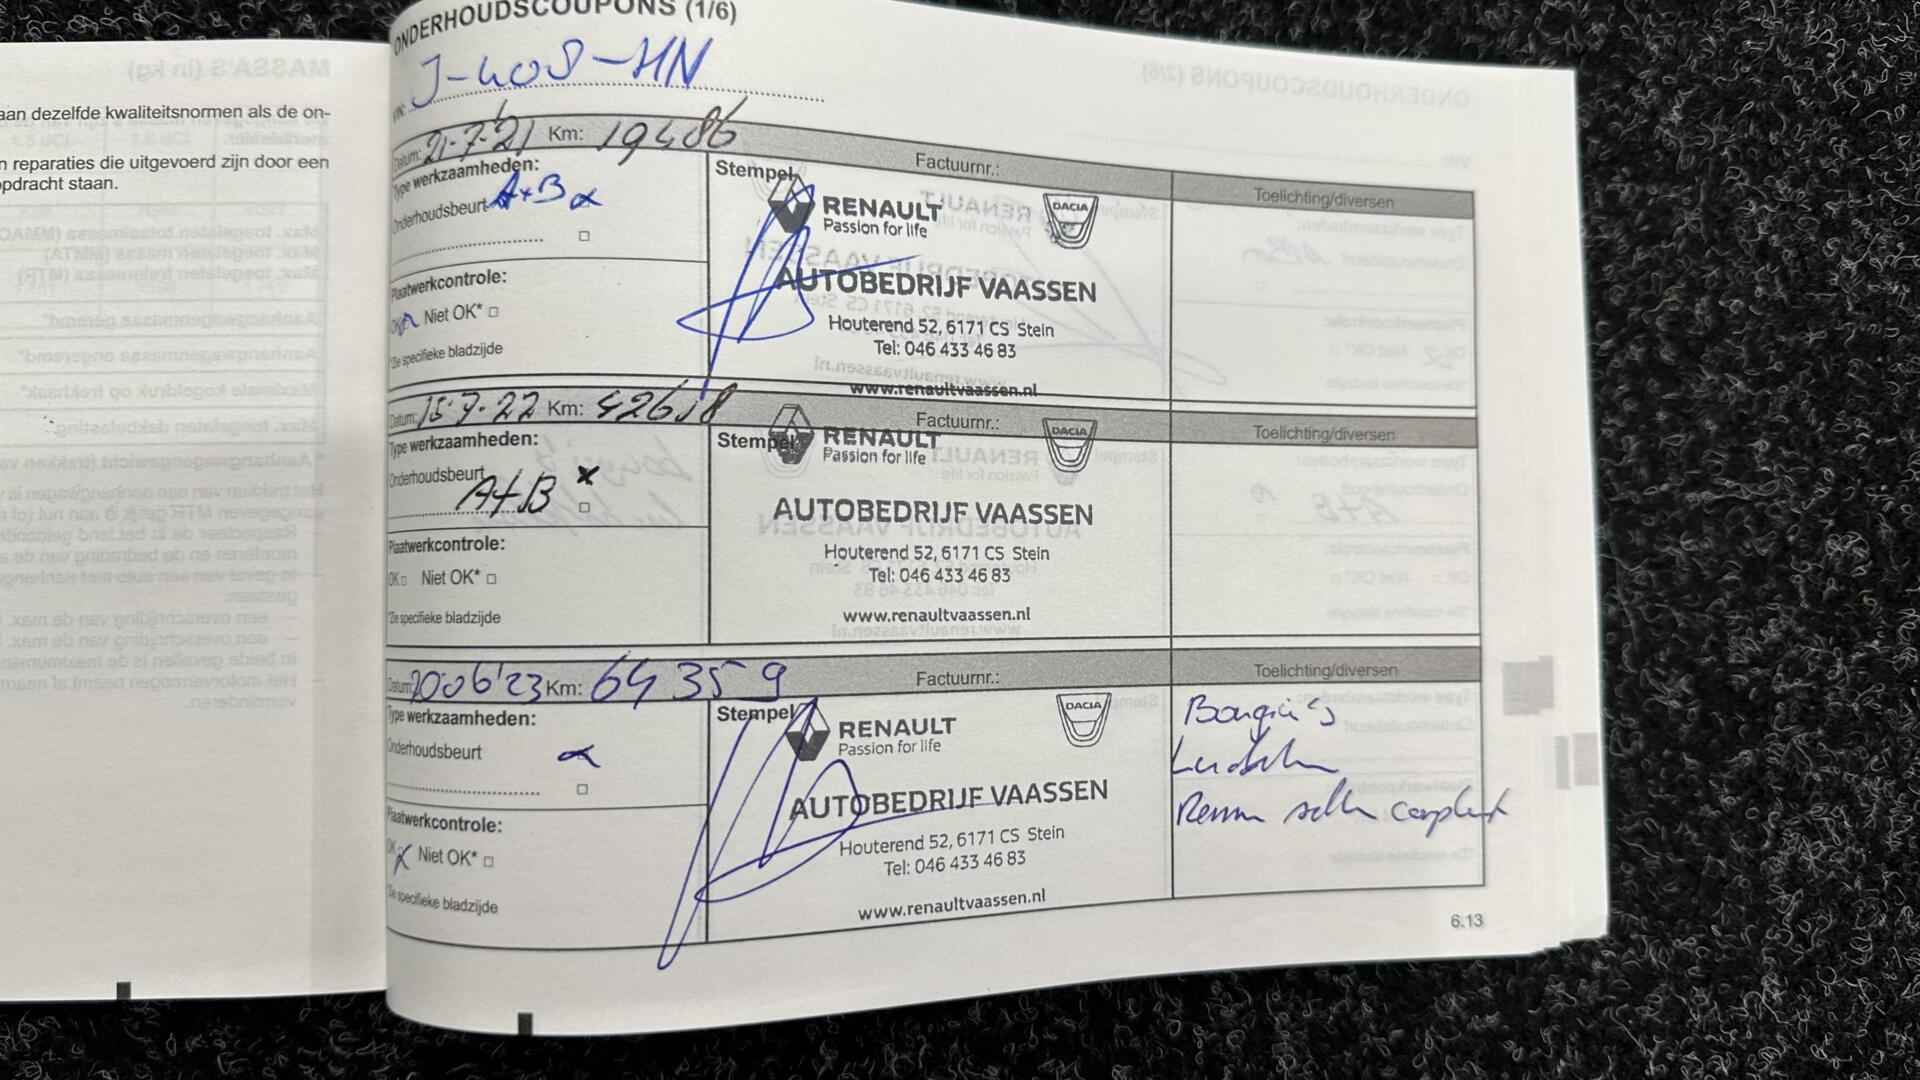 aan dezelfde kwaliteitsnormen als de on-
n reparaties die uitgevoerd zijn door een
opdracht staan.
ONDERHOUDSCOUPONS (1/6)
VIN: J-408-HN
Datum: 21-7-'21 Km: 19486
Factuurnr.:
Toelichting/diversen
Type werkzaamheden:
Onderhoudsbeurt A+B
Plaatwerkcontrole:
OK Niet OK* □
*Zie specifieke bladzijde
Stempel
RENAULT
Passion for life
DACIA
AUTOBEDRIJF VAASSEN
Houterend 52, 6171 CS Stein
Tel: 046 433 46 83
www.renaultvaassen.nl
Datum: 15-7-22 Km: 42618
Factuurnr.:
Toelichting/diversen
Type werkzaamheden:
Onderhoudsbeurt
A+B
Plaatwerkcontrole:
OK □ Niet OK* □
*Zie specifieke bladzijde
Stempel
RENAULT
Passion for life
DACIA
AUTOBEDRIJF VAASSEN
Houterend 52, 6171 CS Stein
Tel: 046 433 46 83
www.renaultvaassen.nl
Datum: 20-06'23 Km: 64 359
Factuurnr.:
Toelichting/diversen
Type werkzaamheden:
Onderhoudsbeurt
Plaatwerkcontrole:
OK Niet OK* □
*Zie specifieke bladzijde
Stempel
RENAULT
Passion for life
DACIA
AUTOBEDRIJF VAASSEN
Houterend 52, 6171 CS Stein
Tel: 046 433 46 83
www.renaultvaassen.nl
Bougie's
6.13